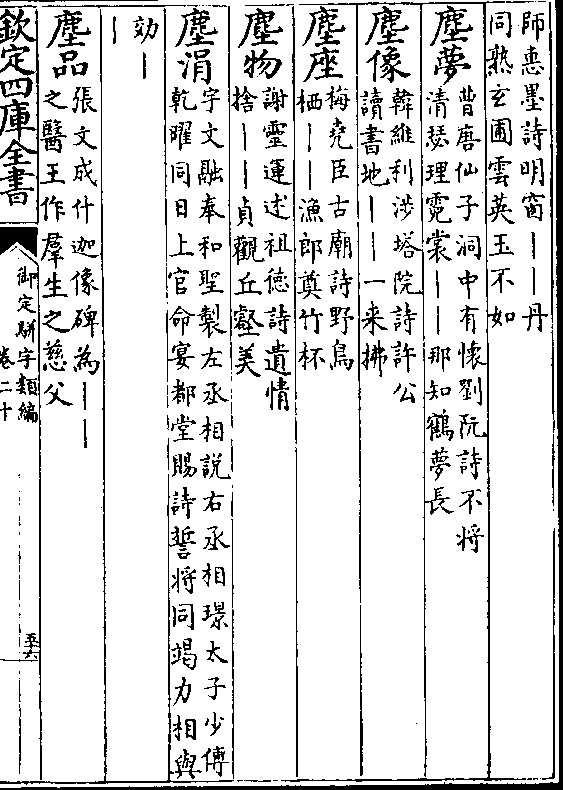 師惠墨詩明窗丨丨丹
同熟玄圃雲英玉不如
塵夢
曹唐仙子洞中有懷劉阮詩不將
清瑟理霓裳丨丨那知鶴夢長
塵像
韓維利涉塔院詩許公
讀書地丨丨一来拂
塵座
梅堯臣古廟詩野鳥
栖丨丨漁郎奠竹杯
塵物
謝靈運述祖德詩遺情
捨丨丨貞觀丘壑美
塵涓
宇文融奉和聖製左丞相說右丞相璟太子少傅
乾曜同日上官命宴都堂賜詩誓將同竭力相與
効丨
丨
塵品
張文成什迦像碑為丨丨
之醫王作羣生之慈父
欽定四庫全書
御定駢字類編
卷二十
五六